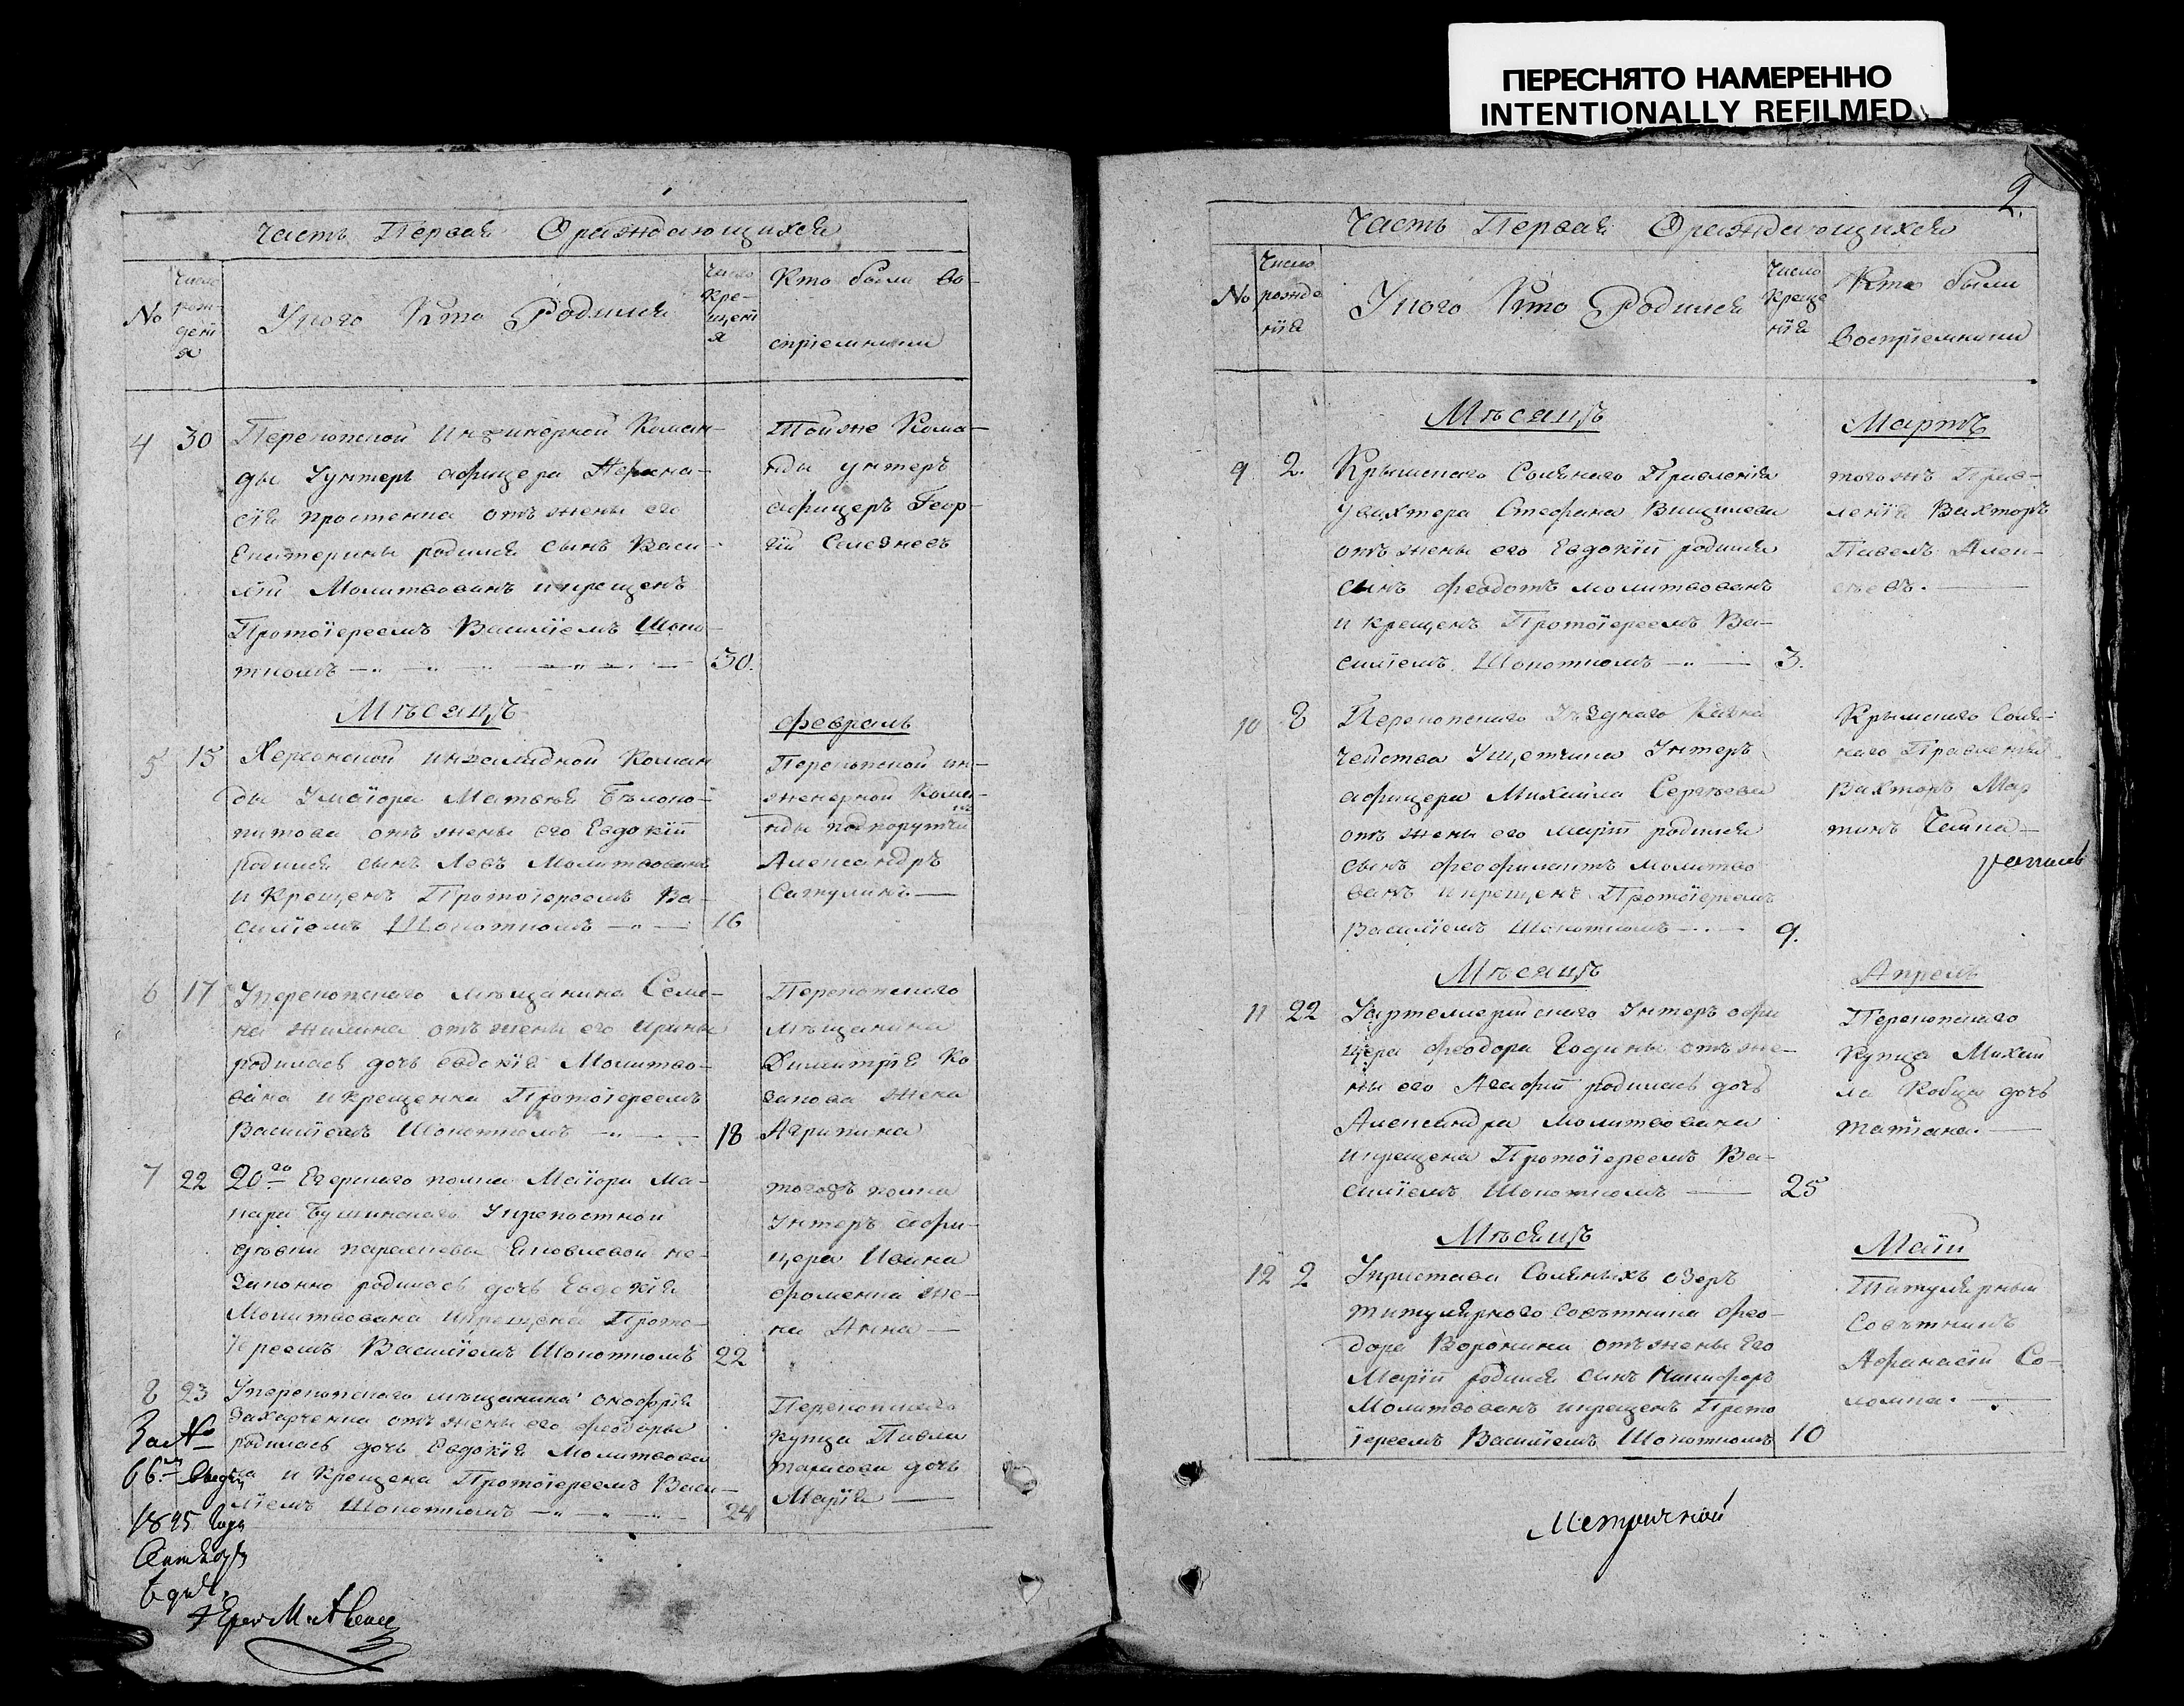 ПЕРЕСНЯТО НАМЕРЕННО
INTENTIONALLY REFILMED
Часть Первая Ораждающихся
№
Число рождения
Уного Кто Родился
Число Крещения
Кто были во-
спріемники
4 30 Перекопской Инжинерной Коман-
ды Уунтеръ афицера
отъ жены его
Екатерины родился сынъ Васи-
лій Молитвованъ и крещенъ
Протоіереемъ Василіемъ Шопо-
ткомъ 30.
Тойже Кома-
нды унтеръ
афицеръ Геор-
гій Селезневъ
Мѣсяцъ Февраль
5 15 Херсонской инвалидной Коман
ды Умаіора Матвѣя Бѣлоко-
питова отъ жены его Евдокіи
родился сынъ Левъ Молитвованъ
и Крещенъ Протоіереемъ Ва-
силіемъ Шопоткомъ 16
Перекопской ин-
женерной Кома-
нды подпорутчикъ
Александръ
6 17 Уперекопскаго мѣщанина Семе-
на Жилина отъ жены его Ирины
родилась дочь евдокія Молитво-
вана и крещенна Протоіереемъ
Василіемъ Шопоткомъ 18
Перекопскаго
мѣщанина
Димитрія Ко
закова жена
Агрипина
7 22 20го Егерскаго полка Маіора Ма-
кара Укрепостной
девки параскевы Яковлевой не-
законно родилась дочь Евдокія
Молитвована и крещена Прото-
іереемъ Василіемъ Шопоткомъ 22
тогожъ полка
Унтеръ афи-
цера Ивана
фоменка же-
на Анна
8 23 Уперекопскаго мѣщанина онофрія
Захарченка отъ жены его феодоры
родилась дочь Евдокія Молитвова
на и Крещена Протоіереемъ Васи-
ліемъ Шопоткомъ 24
Перекопскаго
купца Павла
тарасова дочь
Марія
За №
66м
18 95 года
2.
Часть Первая Ораждающихся
№
Число рожденія
Уного Кто Родился
Число Крещенія
Кто были
воспріемники
Мѣсяцъ Мартъ
9 2. Крымскаго Солянаго Правленія
Увахтера Стефана
отъ жены его Евдокіи родился
сынъ феодотъ молитвованъ
и крещенъ Протоіереемъ Ва-
силіемъ Шопоткомъ 3.
тогожъ Прав-
ленія Вахторъ
Павелъ Алек-
сѣевъ.
10 8 Перекопскаго Уѣзднаго Казна
чейства Ущетчика Унтеръ
афицера Михайла Сергѣева
отъ жены его Маріи родился
сынъ феофилактъ молитво
ванъ и крещенъ Протоіереемъ
Василіемъ Шопоткомъ 9.
Крымскаго Соля-
наго Правленія
Вахторъ Мар
тинъ
Мѣсяцъ Апрель
11 22 Уартеллерійскаго Унтеръ афи
цера феодора отъ же-
ны его Агафіи родилась дочь
Александра Молитвована
и крещена Протоіереемъ Ва-
силіемъ Шопоткомъ 25
Перекопскаго
Купца Михай
ла Кобца дочь
татіана.
Мѣсяцъ Маій
12 2 Упристава Соляныхъ озеръ
титулярнаго совѣтника фео-
дора Воронина отъ жены Его
Маріи родился сынъ Никифоръ
Молитвованъ и крещенъ Прото
іереемъ Василіемъ Шопоткомъ 10
Титулярный
Совѣтникъ
Афанасій Со-
ломка.
Метрической